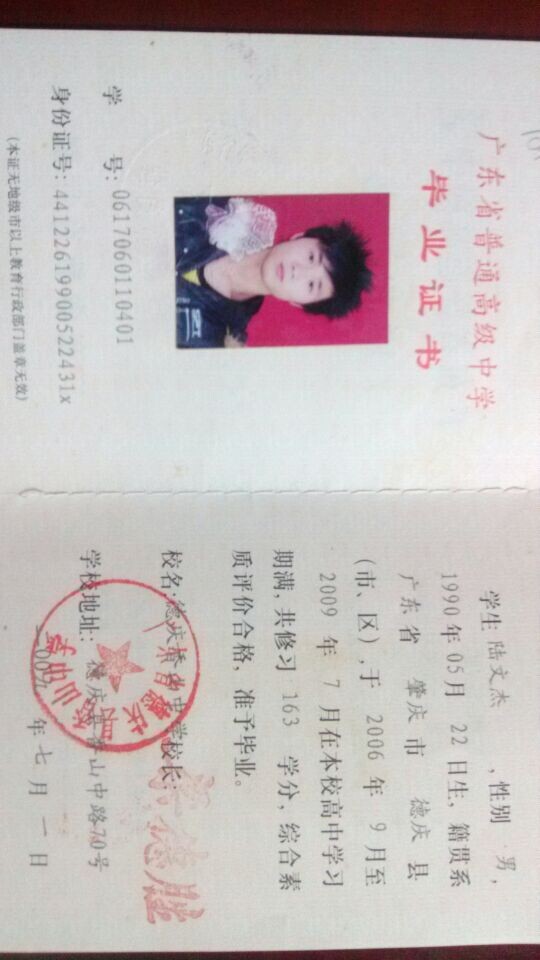 广东省普通高级中学
毕业证书
学 号: 0617060110401
身份证号: 44122619900522431x
(本证无地级市以上教育行政部门盖章无效)
学生 陆文杰 , 性别 男,
1990 年 05 月 22 日生, 籍贯系
广东省 肇庆 市 德庆 县
(市、区), 于 2006 年 9 月至
2009 年 7 月在本校高中学习
期满, 共修习 163 学分, 综合素
质评价合格, 准予毕业。
校名: 德庆 山中学 校长:
学校地址: 德庆 山中路70号
二00九 年 七 月 一 日